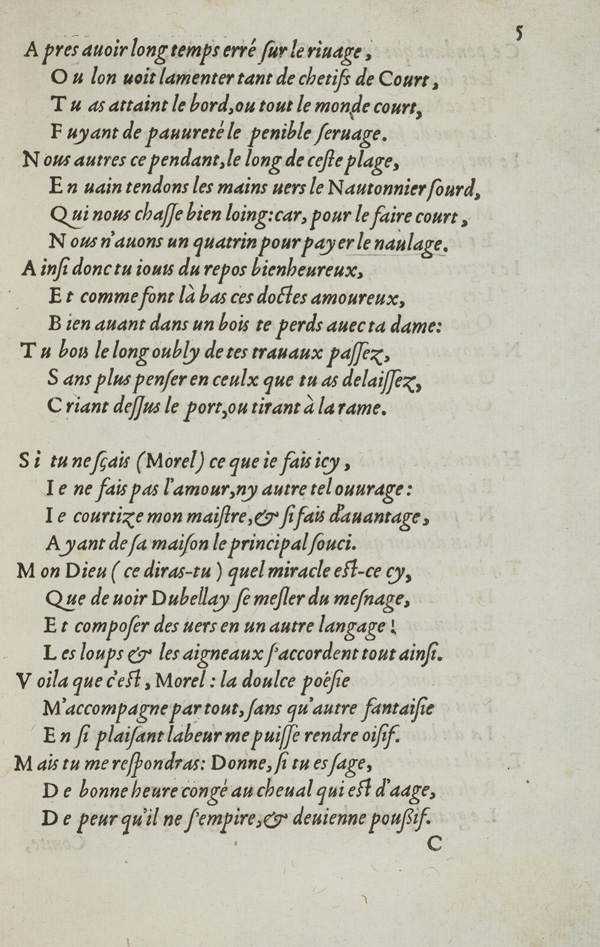 5
Apres auoir long temps erré ſur le riuage,
Ou lon uoit lamenter tant de chetifs de Court,
Tu as attaint le bord, ou tout le monde court,
Fuyant de pauureté le penible ſeruage.
Nous autres ce pendant, le long de ceſte plage,
En uain tendons les mains uers le Nautonnier ſourd,
Qui nous chaſſe bien loing: car, pour le faire court,
Nous n'auons un quatrin pour payer le naulage.
Ainſi donc tu iouis du repos bienheureux,
Et comme font là bas ces doctes amoureux,
Bien auant dans un bois te perds auec ta dame:
Tu bois le long oubly de tes trauaux paſſez,
Sans plus penſer en ceulx que tu as delaiſſez,
Criant deſſus le port, ou tirant à la rame.
Si tu ne ſçais (Morel) ce que ie fais icy,
Ie ne fais pas l'amour, ny autre tel ouurage:
Ie courtize mon maiſtre, & ſi fais d'auantage,
Ayant de ſa maiſon le principal ſouci.
Mon Dieu (ce diras-tu) quel miracle eſt-ce cy,
Que de uoir Dubellay ſe meſler du meſnage,
Et compoſer des uers en un autre langage!
Les loups & les aigneaux ſ'accordent tout ainſi.
Voila que c'eſt, Morel: la doulce poëſie
M'accompagne par tout, ſans qu'autre fantaiſie
En ſi plaiſant labeur me puiſſe rendre oiſif.
Mais tu me reſpondras: Donne, ſi tu es ſage,
De bonne heure congé au cheual qui eſt d'aage,
De peur qu'il ne ſ'empire, & deuienne pouſsif.
C